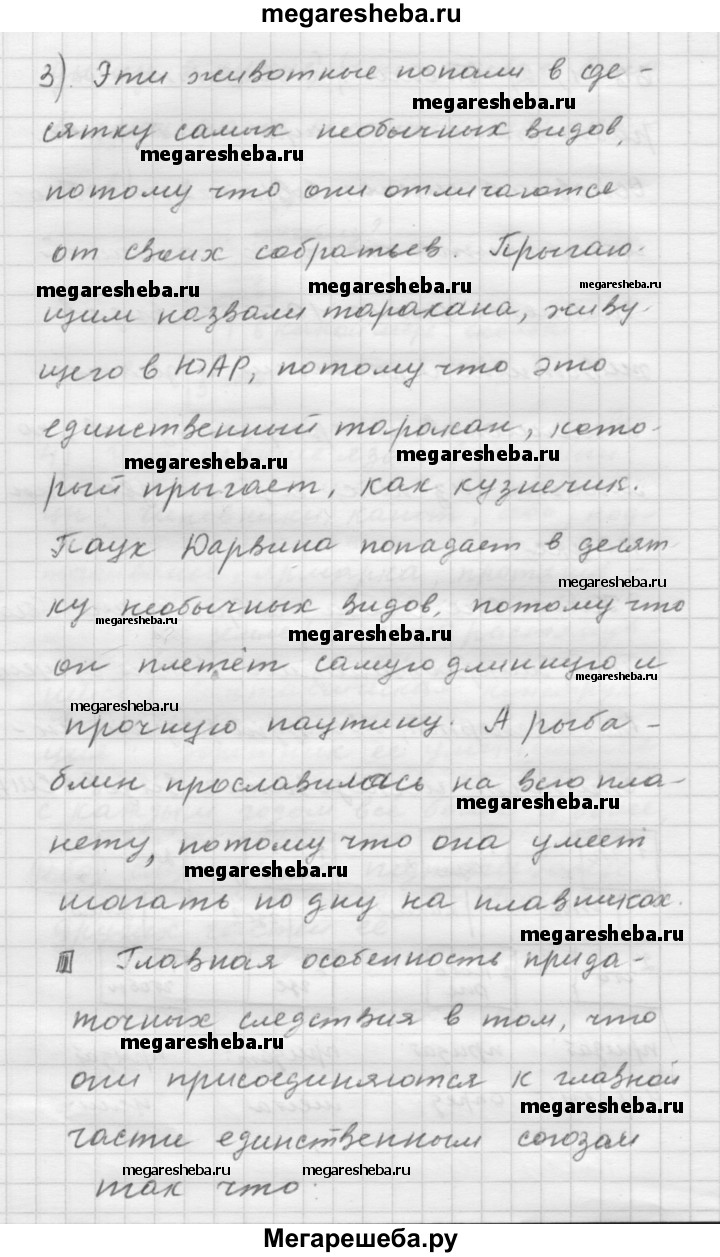 megaresheba.ru
3). Эти животные попали в де-
megaresheba.ru
сятку самых необычных видов,
megaresheba.ru
потому что они отличаются
от своих собратьев. Прыгаю-
megaresheba.ru megaresheba.ru megaresheba.ru
щим назвали таракана, живу-
щего в ЮАР, потому что это
единственный таракан, кото-
megaresheba.ru megaresheba.ru
рый прыгает, как кузнечик.
Паук Дарвина попадает в десят
megaresheba.ru
ку необычных видов, потому что
megaresheba.ru megaresheba.ru
он плетёт самую длинную и
megaresheba.ru megaresheba.ru
прочную паутину. А рыба-
блин прославилась на всю пла-
megaresheba.ru
нету, потому что она умеет
megaresheba.ru
шагать по дну на плавниках.
megaresheba.ru
III Главная особенность прида-
точных следствия в том, что
megaresheba.ru
они присоединяются к главной
megaresheba.ru
части единственным союзом
megaresheba.ru megaresheba.ru
так что.
Мегарешеба.ру